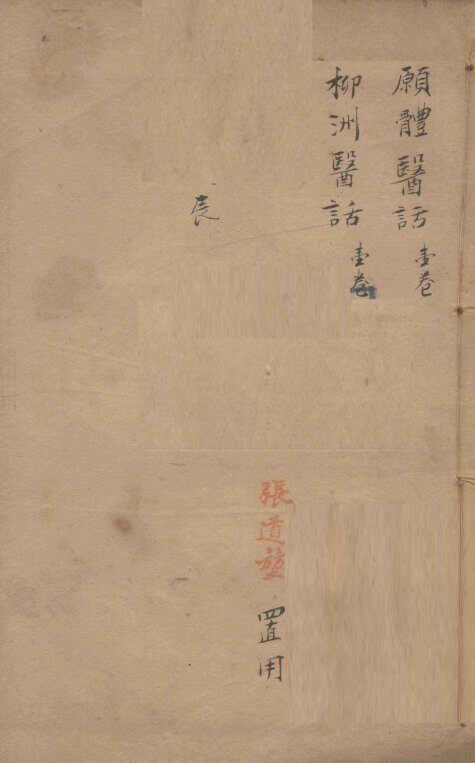 願體醫話 壹卷
柳洲醫話 壹卷
張道
置用